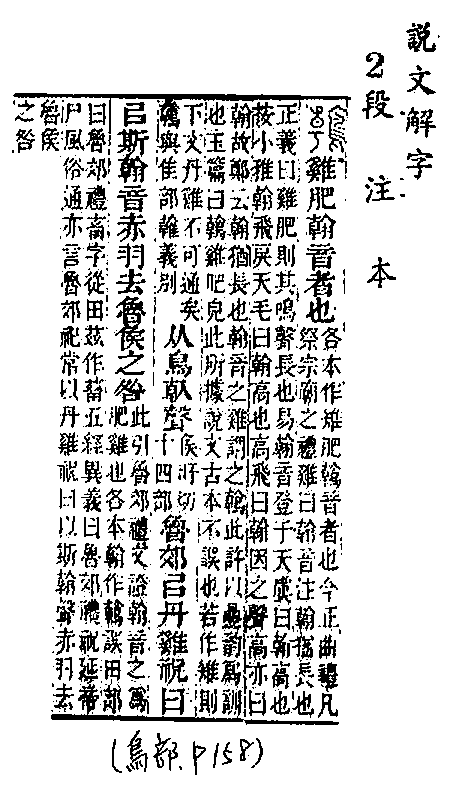 説文解字
2段 注 本
雞肥翰音者也
各本作雉肥鶾音者也今正曲禮凡
祭宗廟之禮雞曰翰音注翰猶長也
正義曰雞肥則其鳴聲長也易翰音登于天虞曰翰高也
按小雅翰飛戾天毛曰翰高也高飛曰翰因之聲高亦曰
翰故鄭云翰猶長也翰音之雞謂之鶾此許以疊韵爲訓
也玉篇曰鶾雞肥皃此所據說文古本不誤也若作雉則
下文丹雞不可通矣
鶾與隹部雗義別
从鳥倝聲
矦旰切
十四部
魯郊㠯丹雞祝曰
㠯斯翰音赤羽去魯侯之咎
此引魯郊禮文證翰音之爲
肥雞也各本翰作鶾誤田部
曰魯郊禮畜字從田茲作蓄五經異義曰魯郊禮祝延帝
尸風俗通亦言魯郊祀常以丹雞祝曰以斯翰聲赤羽去
魯侯
之咎
(鳥部.P158)